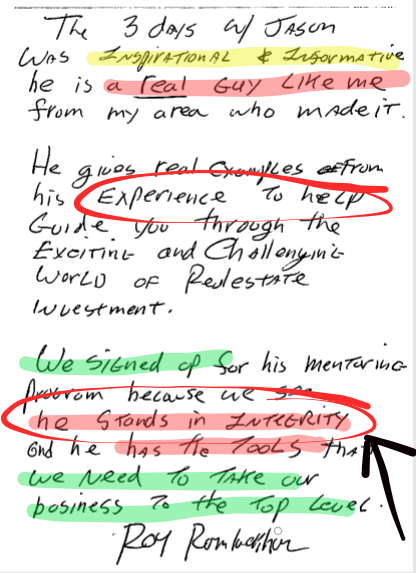 The 3 days w/ Jason
was Inspirational & Informative
he is a real guy Like me
from my area who made it.
He gives real examples from
his Experience to help
Guide you through the
Exciting and Challenging
World of Realestate
Investment.
We signed up for his mentoring
program because we see
he stands in Integrity
and he has the Tools that
we need to take our
business to the top Level.
Roy